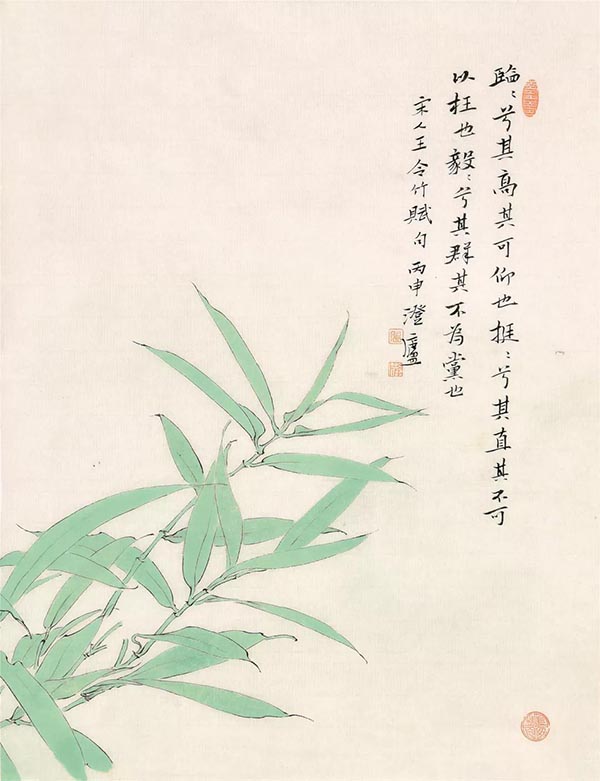 臨〻兮其高其可仰也挺〻兮其直其不可
以枉也毅〻兮其群其不為黨也
宋人王令竹賦句 丙申澄廬